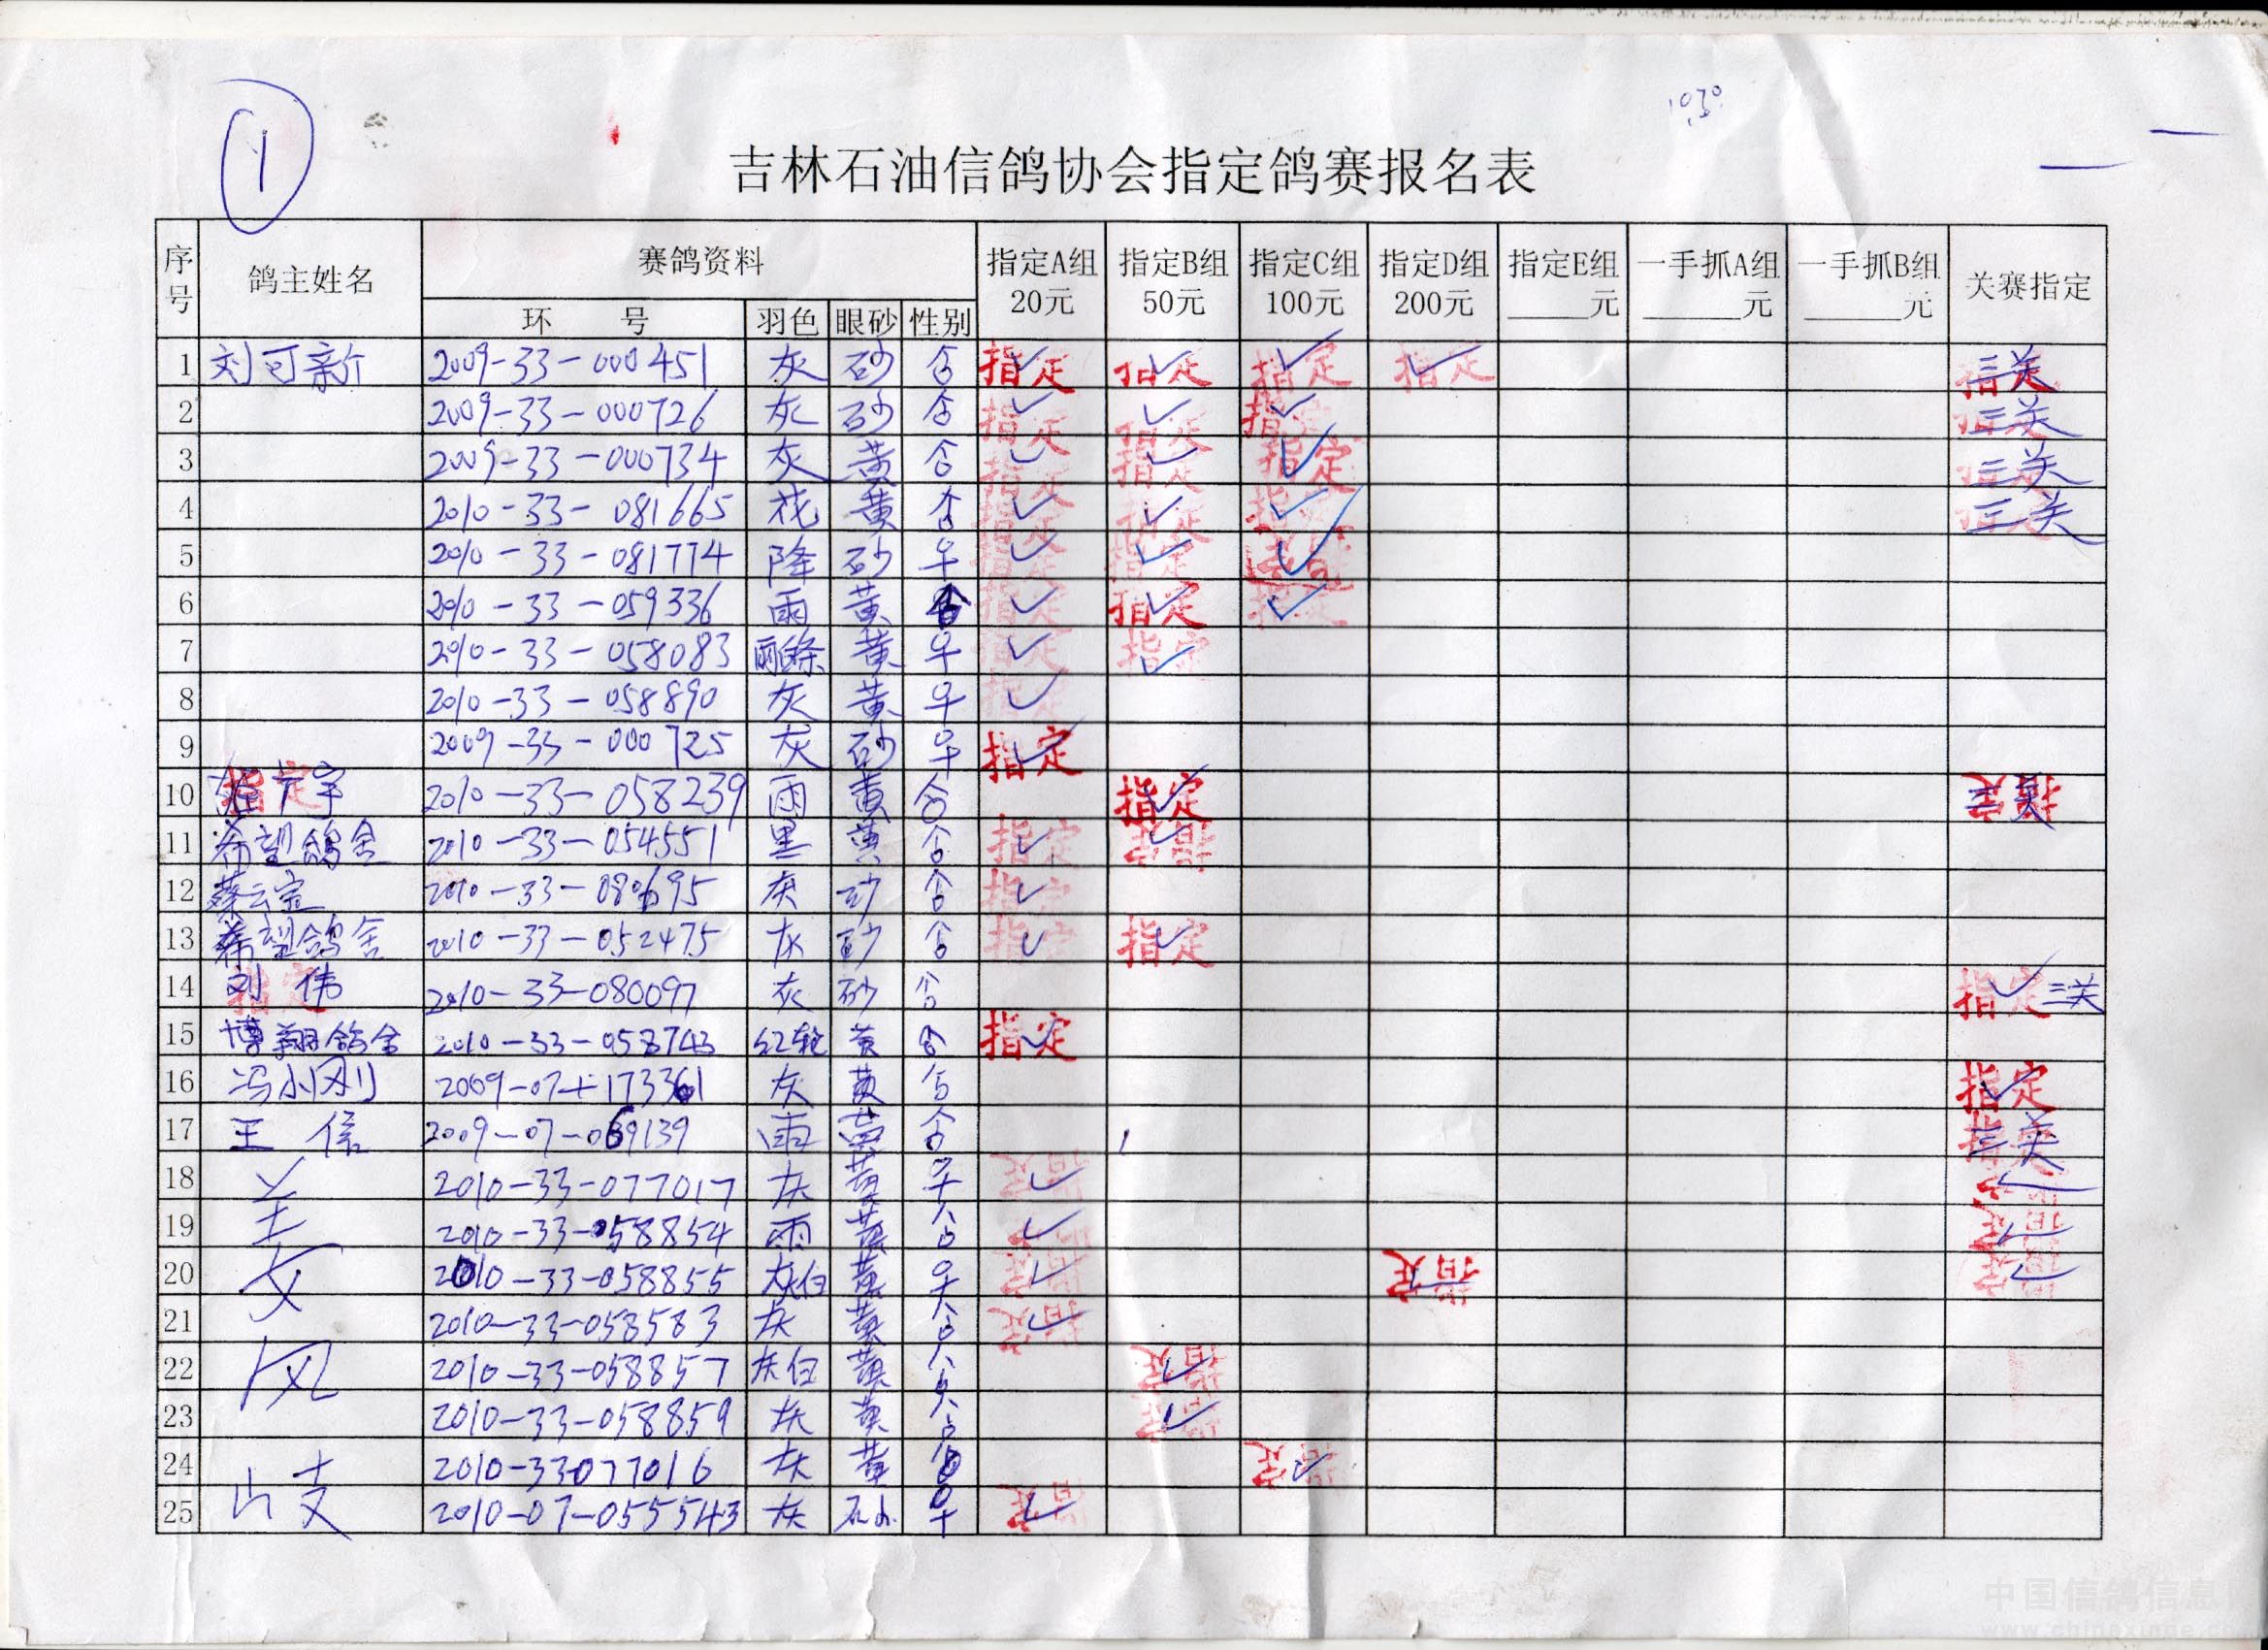 1
吉林石油信鸽协会指定鸽赛报名表
序号 鸽主姓名 赛鸽资料 指定A组 20元 指定B组 50元 指定C组 100元 指定D组 200元 指定E组 ______元 一手抓A组 ______元 一手抓B组 ______元 关赛指定
环 号 羽色 眼砂 性别
1 刘可新 2009-33-000451 灰 砂 合 指定 ✓ 指定 ✓ 指定 ✓ 指定 ✓ 指定 三关
2 2009-33-000726 灰 砂 合 指定 ✓ 指定 ✓ 指定 ✓ 指定 三关
3 2009-33-000734 灰 黄 合 指定 ✓ 指定 ✓ 指定 ✓ 指定 三关
4 2010-33-081665 花 黄 合 指定 ✓ 指定 ✓ 指定 ✓ 指定 三关
5 2010-33-081774 降 砂 早 指定 ✓ 指定 ✓ 指定 ✓
6 2010-33-059336 雨 黄 合 指定 ✓ 指定 ✓ 指定 ✓
7 2010-33-058083 雨条 黄 早 指定 ✓ 指定 ✓
8 2010-33-058890 灰 黄 早 指定 ✓
9 2009-33-000725 灰 砂 早 指定 ✓
10 指定 宇 2010-33-058239 雨 黄 合 指定 ✓ 指定 三关
11 希望鸽舍 2010-33-054551 黑 黄 合 指定 ✓ 指定 ✓
12 蔡云宝 2010-33-080695 灰 砂 合 指定 ✓
13 希望鸽舍 2010-33-052475 灰 砂 合 指定 ✓ 指定 ✓
14 刘伟 指定 2010-33-080097 灰 砂 合 指定 ✓ 三关
15 博翔鸽舍 2010-33-058743 红轮 黄 合 指定 ✓
16 冯小刚 2009-07-173361 灰 黄 合 指定 ✓
17 王信 2009-07-069139 雨 黄 合 指定 三关
18 2010-33-077017 灰 黄 早 指定 ✓ 指定
19 姜 2010-33-058854 雨 黄 合 指定 ✓ 指定 ✓
20 2010-33-058855 灰白 黄 早 指定 ✓ 指定 指定 ✓
21 2010-33-058583 灰 黄 合 指定 ✓
22 凤 2010-33-058857 灰白 黄 指定 ✓
23 2010-33-058859 灰 黄 合 指定 ✓
24 2010-33077016 灰 黄 指定 ✓
25 岐 2010-07-055543 灰 砂 早 指定 ✓
中国信鸽信息
www.chinaxinge.com